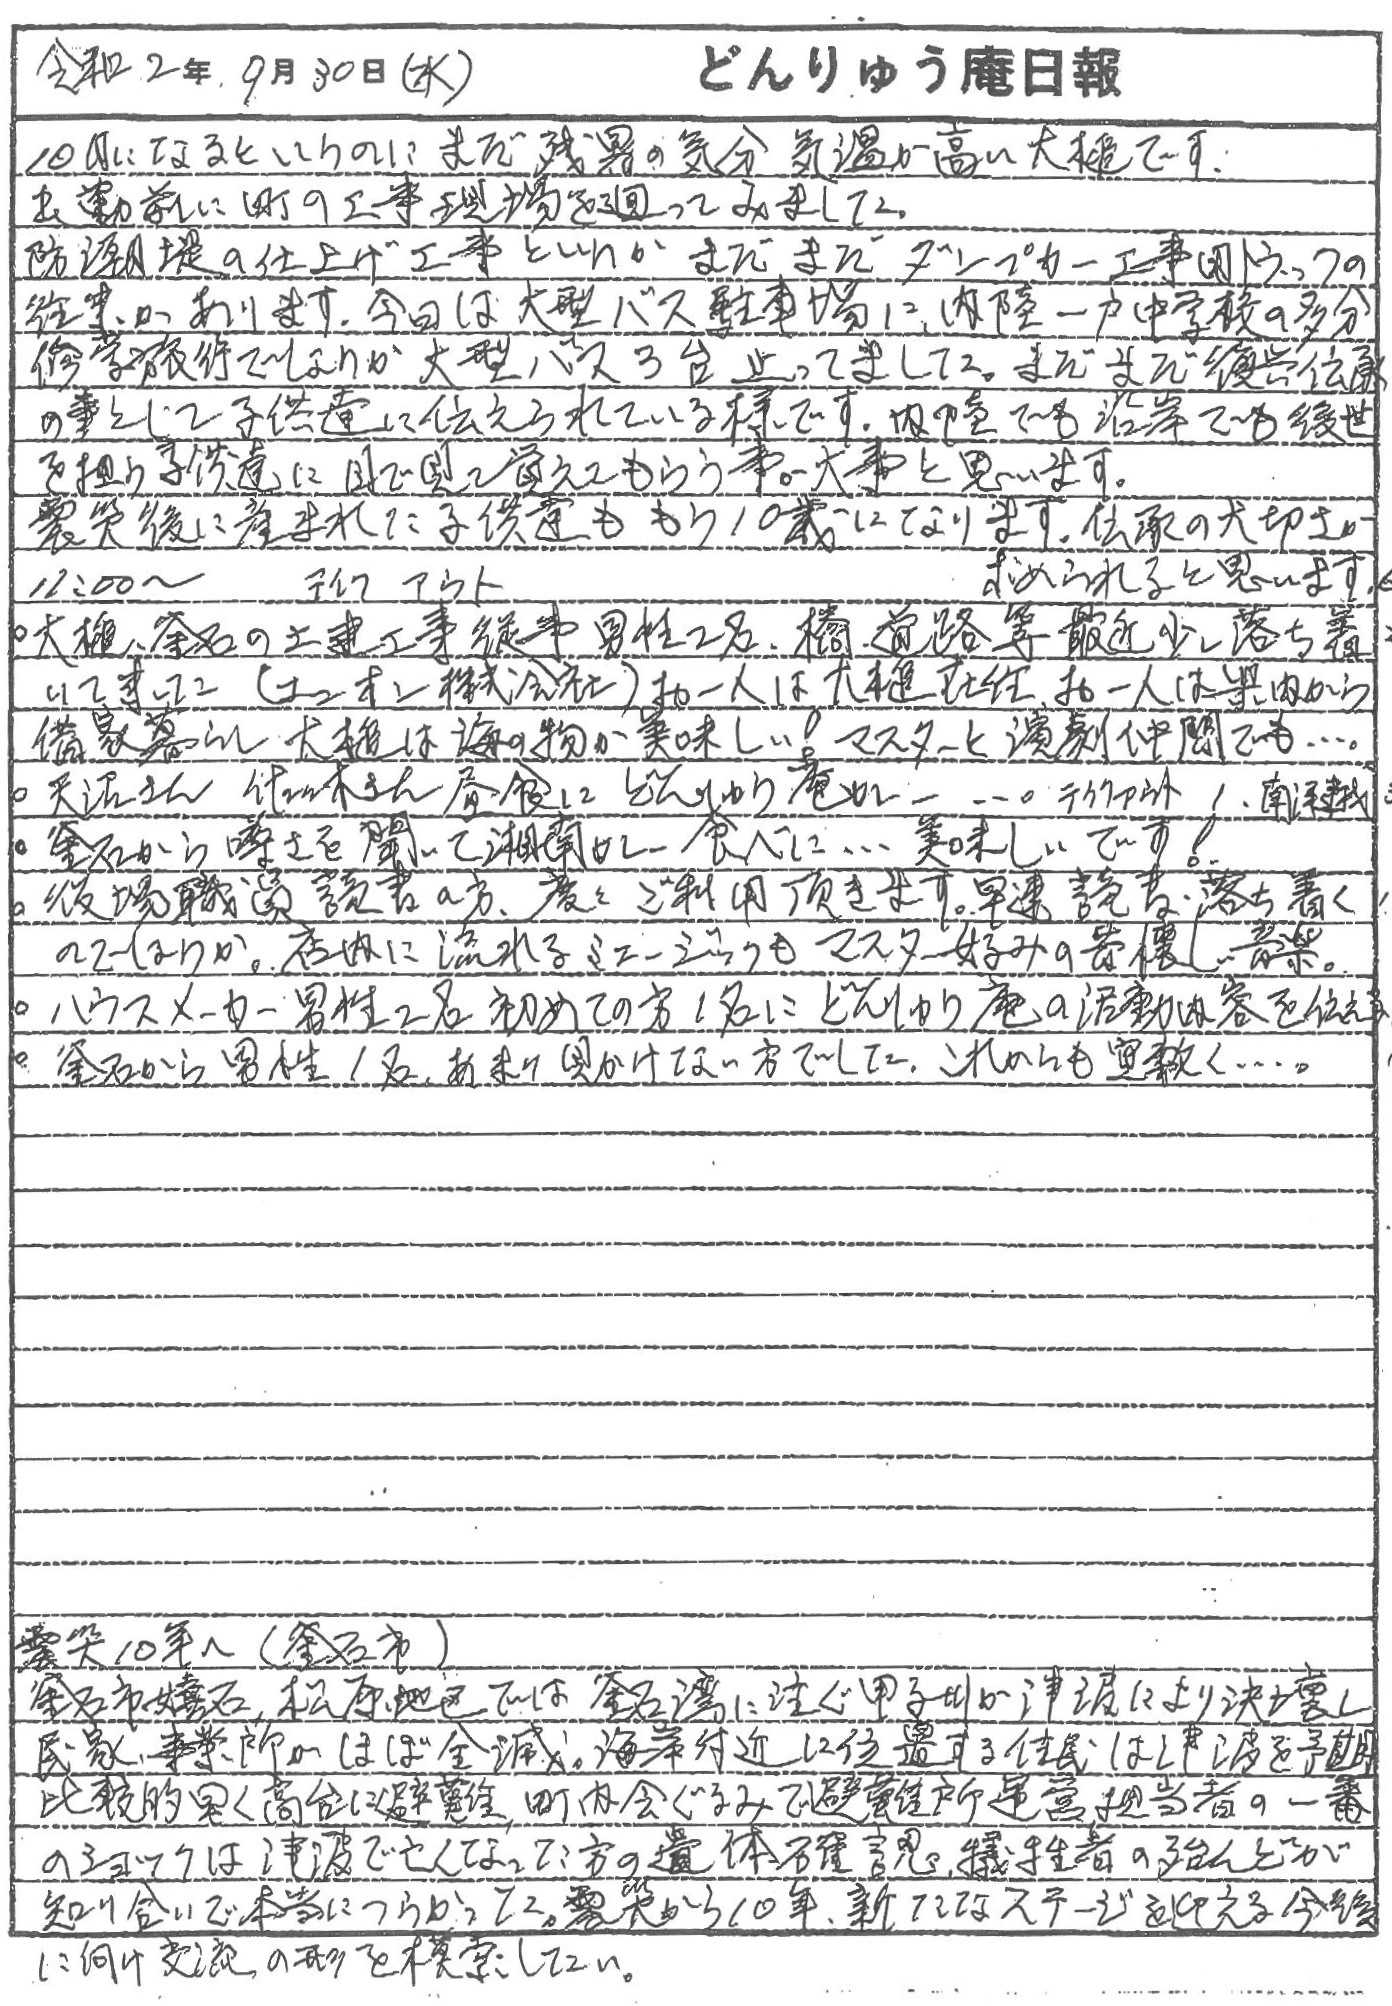 令和2年 9月30日(水) どんりゅう庵日報
10月になるというのにまだ残暑の気分 気温が高い大槌です.
出勤前に町の工事現場を廻ってみました。
防潮堤の仕上げ工事というか まだまだ ダンプカー工事用トラックの
往来があります. 今日は大型バス駐車場に、内陸一戸中学校の多分
修学旅行でしょうか 大型バス3台止ってました。まだまだ復興伝承
の事として子供達に伝えられている様です. 内陸でも沿岸でも後世
を担う子供達に目で見て覚えてもらう事が大事と思います。
震災後に産まれた子供達ももう10歳になります. 伝承の大切さが
求められると思います.
12:00〜 テイクアウト
○大槌、釜石の土建工事従事男性2名、橋、道路等最近少し落ち着
いて来ました (ナニオン株式会社) お一人は大槌在住 お一人は県内から
借家暮らし 大槌は海の物が美味しい! マスターと演劇仲間でも....。
○天沼さん 佐々木さん昼食にどんりゅう庵カレー...。テイクアウト 1.
○釜石から噂さを聞いて湘南カレー食べに... 美味しいです!
○役場職員読書の方、度々ご利用頂きます。早速読書、落ち着く
のでしょうか。店内に流れるミュージックもマスター好みの昔懐しい音楽。
○ハウスメーカー男性2名 初めての方1名にどんりゅう庵の活動内容を伝え
○釜石から男性1名、あまり見かけない方でした. これからも宜敷く....。
震災10年へ (釜石市)
釜石市嬉石、松原地区では釜石湾に注ぐ甲子川が津波により決壊し
民家、事業所がほぼ全滅。海岸付近に位置する住民は津波を予期
比較的早く高台に避難、町内会ぐるみで避難所運営担当者の一番
のショックは津波で亡くなった方の遺体確認、犠牲者の殆んどが
知り合いで本当につらかった。震災から10年、新たなステージを迎える今後
に向け交流の形を模索したい。